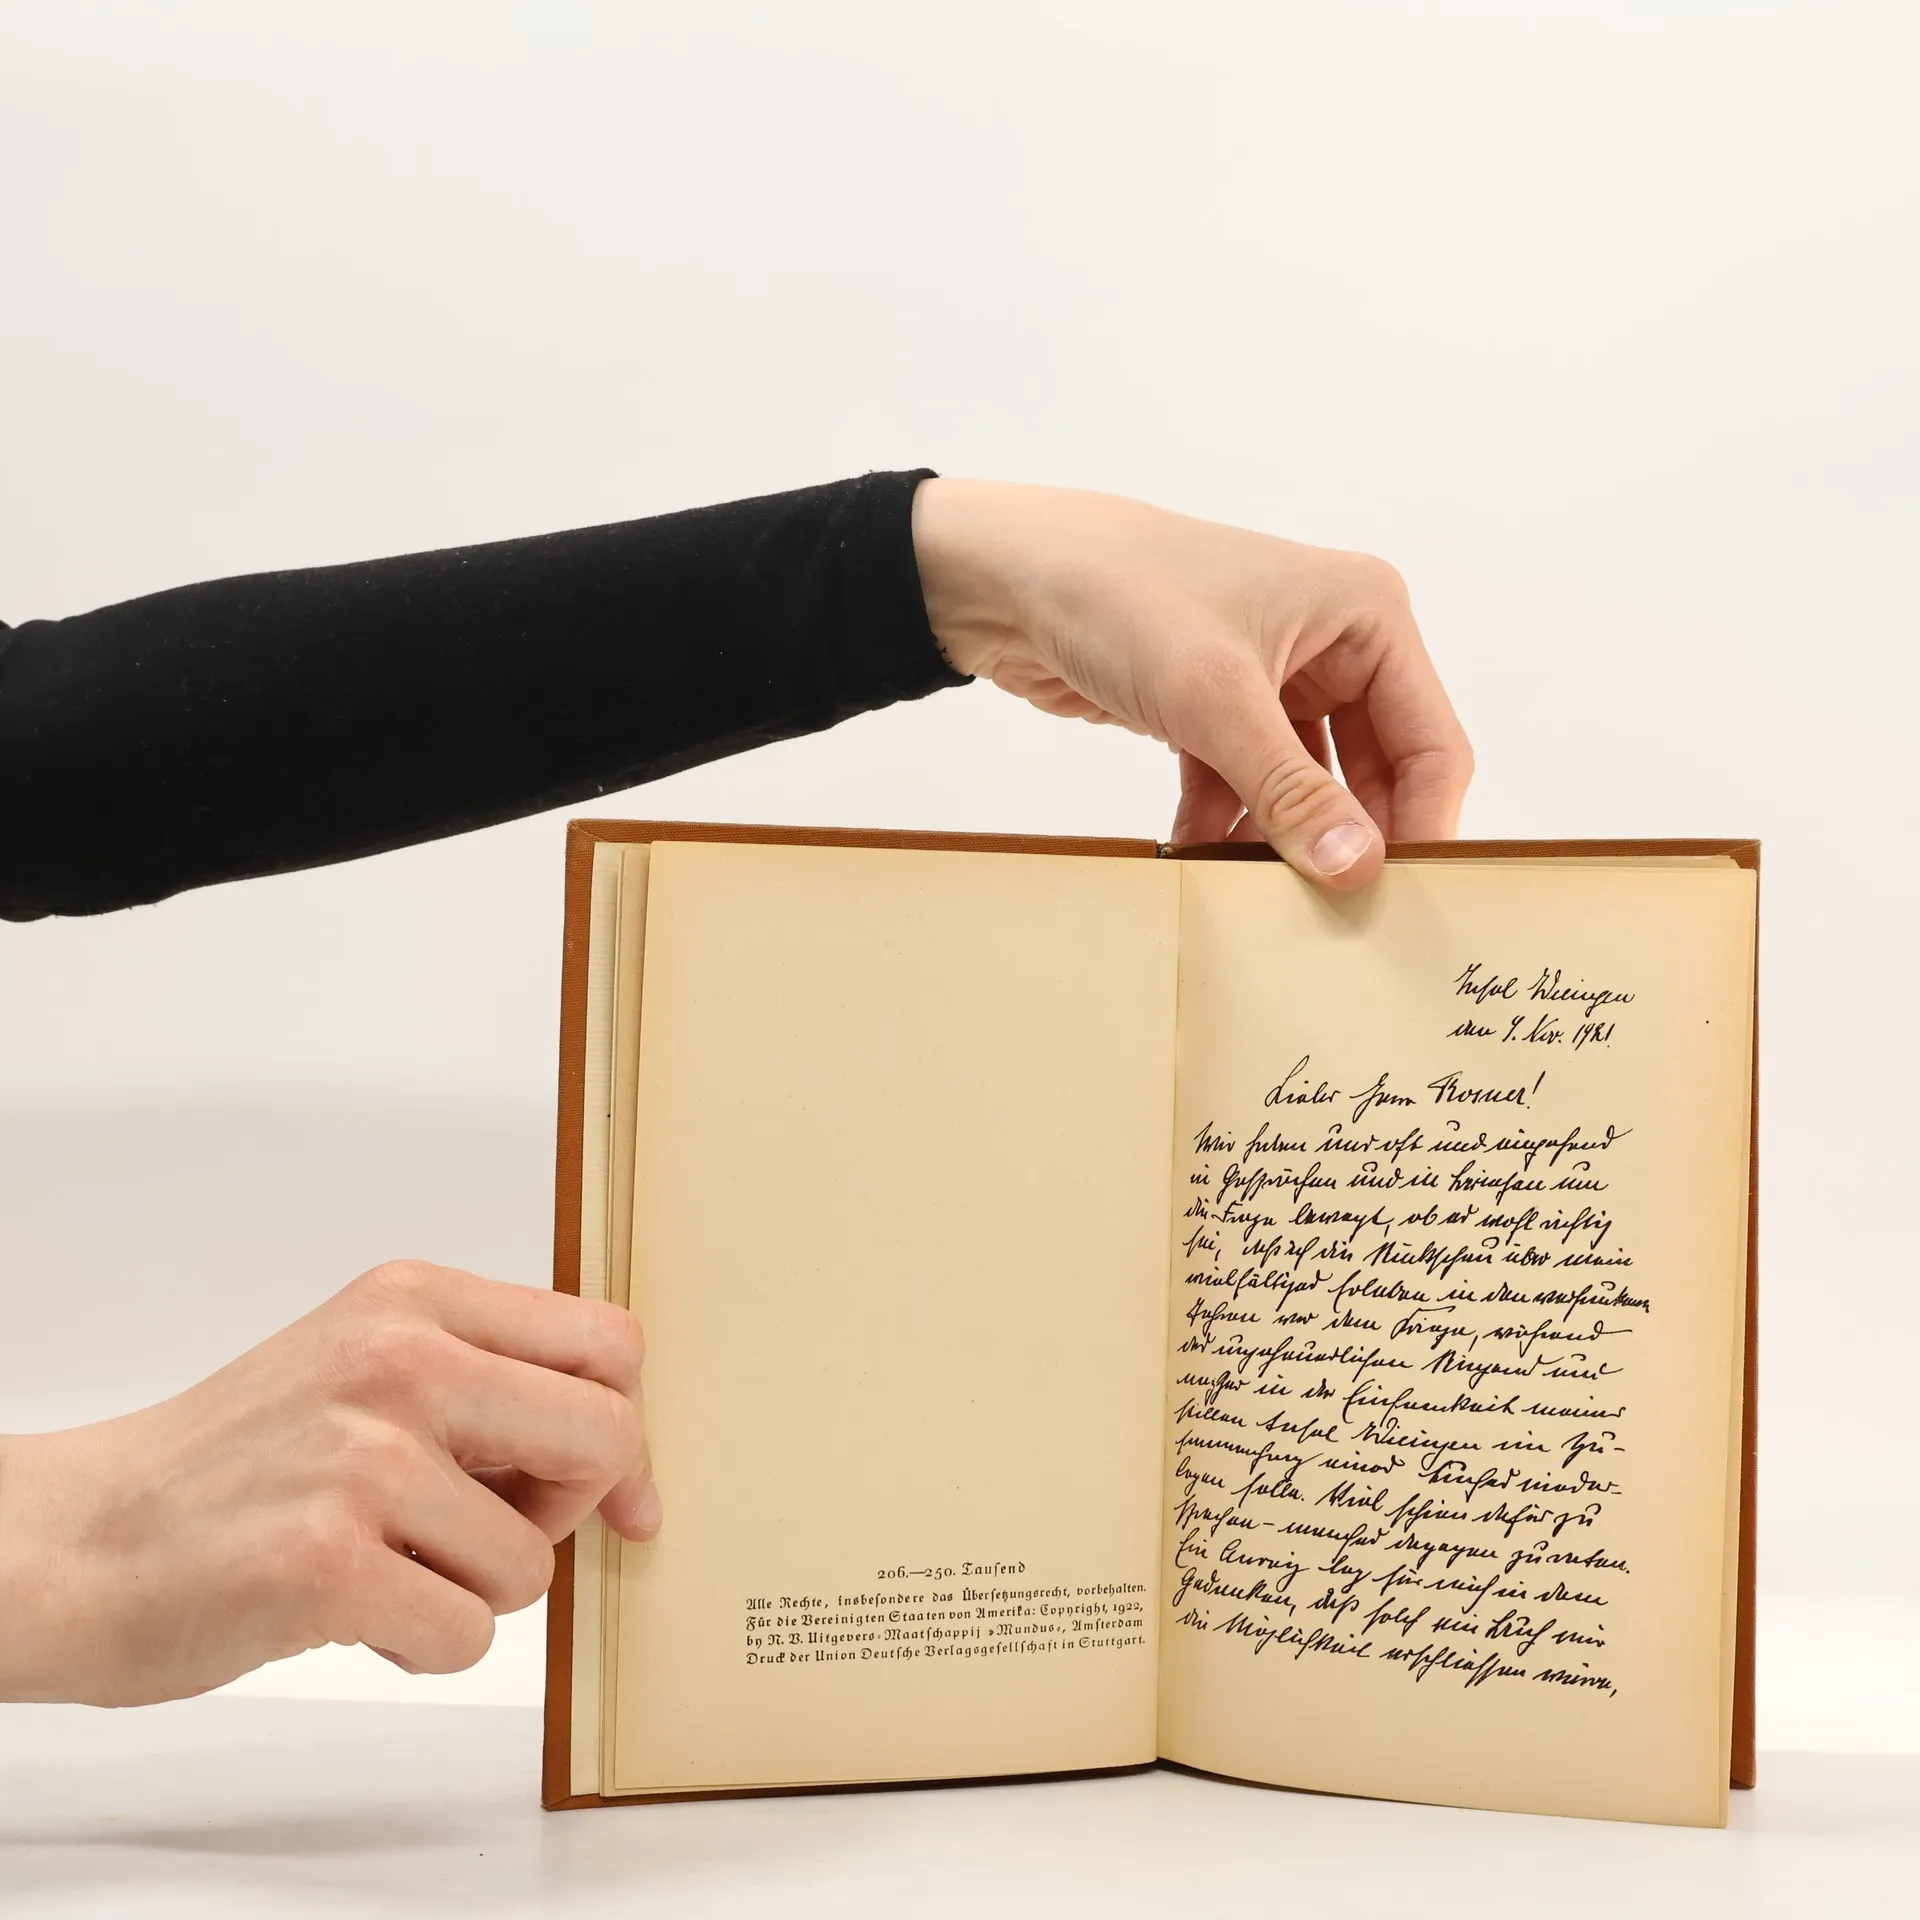 206.—250. Tausend
Alle Rechte, insbesondere das Übersetzungsrecht, vorbehalten.
Für die Vereinigten Staaten von Amerika: Copyright, 1922,
by N. V. Uitgevers-Maatschappij »Mundus«, Amsterdam
Druck der Union Deutsche Verlagsgesellschaft in Stuttgart.
Insel Wieringen
den Nov. 1921.
Lieber Herr Rosner!
Wir haben uns oft und eingehend
in Gesprächen und in Briefen um
die Frage bewegt, ob es wohl richtig
sei, daß ich die Rückschau über mein
vielfältiges Erleben in den versunkenen
Jahren vor dem Kriege, während
des ungeheuerlichen Ringens und
in der Einsamkeit meiner
stillen Insel Wieringen im Zu-
sammenhang eines Buches nieder-
legen solle. Viel schien dafür zu
sprechen – manches dagegen zu raten.
Ein Anreiz lag für mich in dem
Gedanken, daß solch ein Buch mir
die Möglichkeit erschliessen würde,